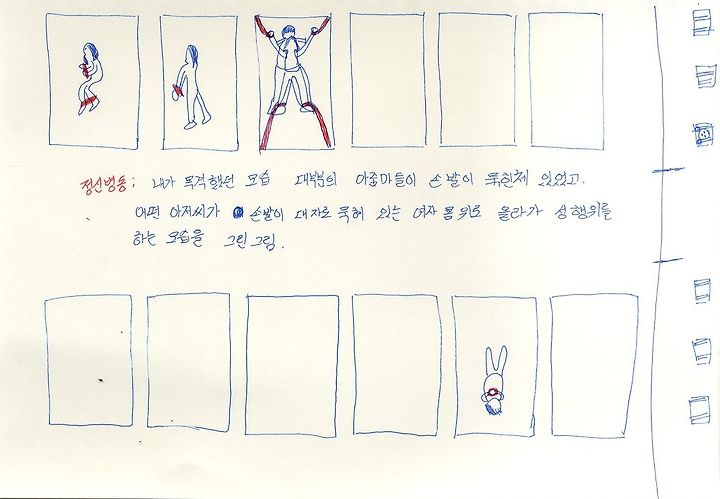 정신병동; 내가 목격했던 모습 대부분의 아줌마들이 손발이 묶인체 있었고.
어떤 아저씨가 손발이 대자로 묶혀 있는 여자 몸위로 올라가 성행위를
하는 모습을 그린그림.